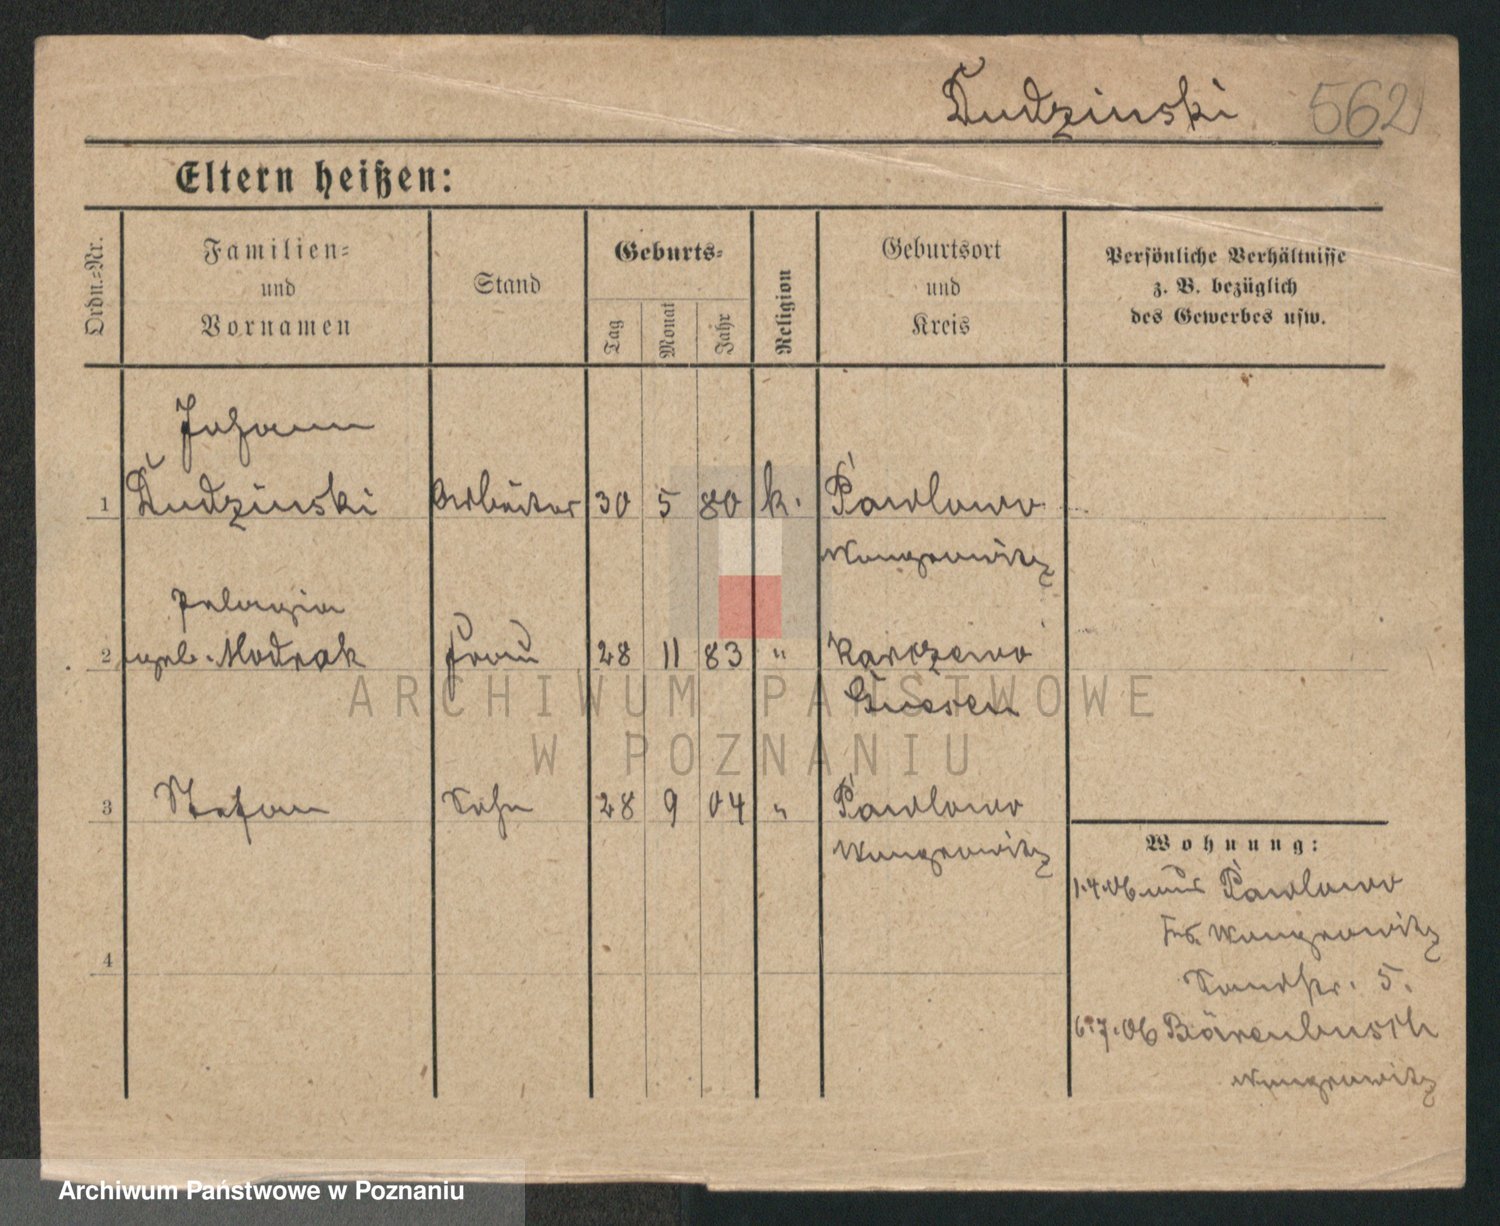 Dudzinski 562
Eltern heißen:
Ordn.=Nr.
Familien=
und
Vornamen
Stand
Geburts=
Tag
Monat
Jahr
Religion
Geburtsort
und
Kreis
Persönliche Verhältnisse
z. B. bezüglich
des Gewerbes usw.
Johann
1 Dudzinski Arbeiter 30 5 80 k. Pawlowo
Wongrowitz
Pelagia
2 geb. Modrak Frau 28 11 83 " Karczewo
Gnesen
3 Stefan Sohn 28 9 04 " Pawlowo
Wongrowitz
4
Wohnung:
1.4.06 aus Pawlowo
Wongrowitz
Sandstr. 5.
6.7.06 Bärenbusch
Wongrowitz
ARCHIWUM PAŃSTWOWE
W POZNANIU
Archiwum Państwowe w Poznaniu